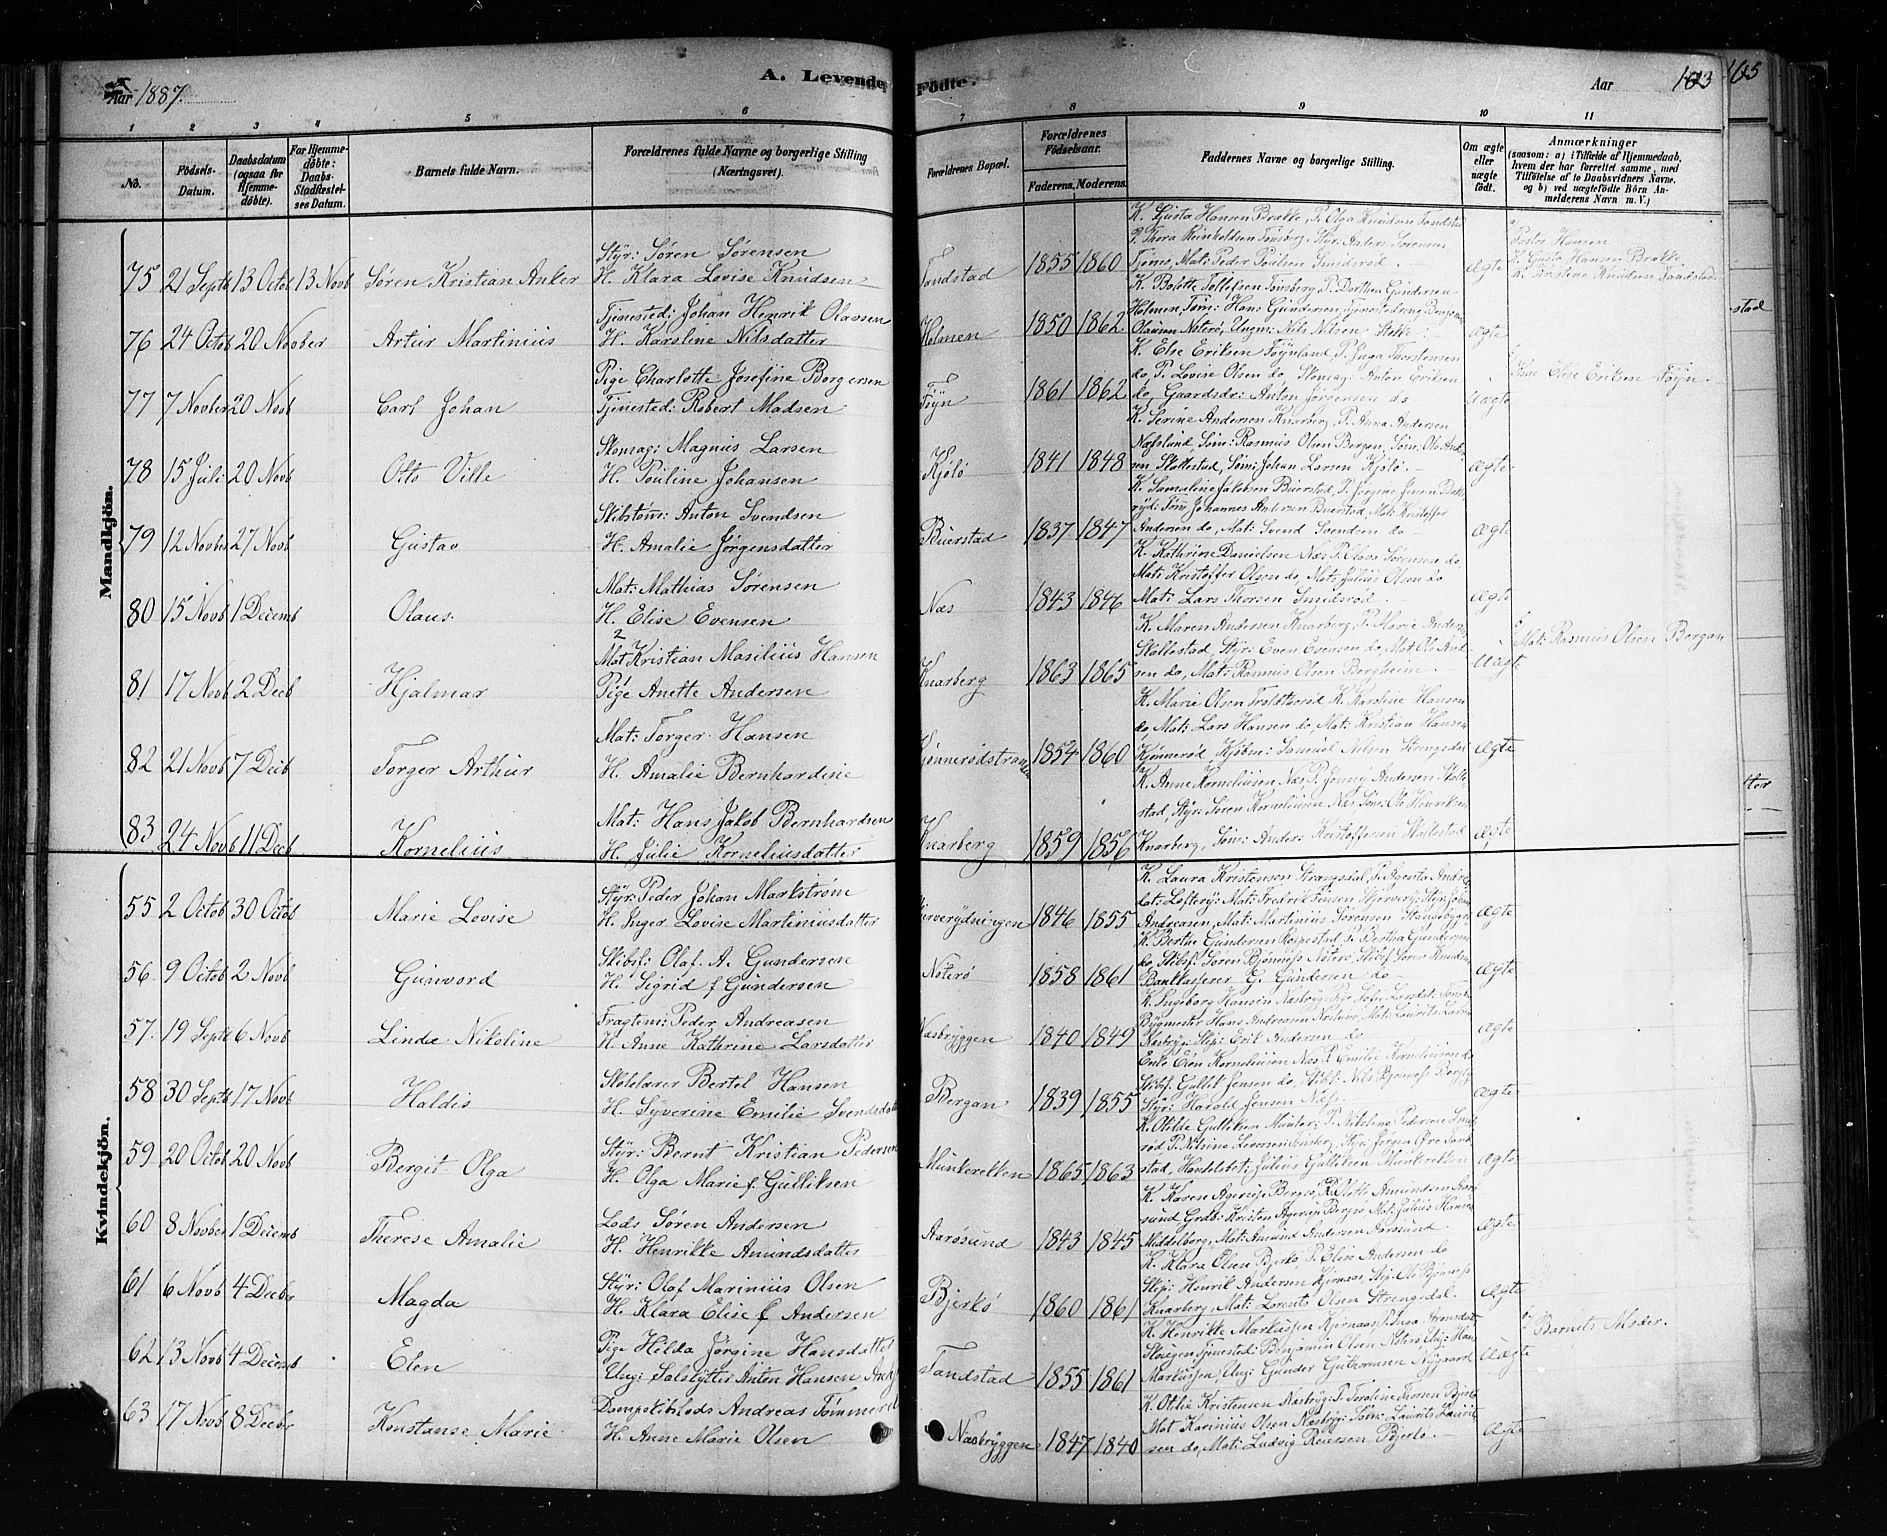 Aar 1887.
A. Levende Födte.
Aar
103
105
1 2 3 4 5 6 7 8 9 10 11
No.
Födsels-Datum.
Daabsdatum (ogsaa for Hjemmedøbte).
For Hjemmedøbte: Daabs-Stadfæstelses Datum.
Barnets fulde Navn.
Forældrenes fulde Navne og borgerlige Stilling (Næringsvei).
Forældrenes Bopæl.
Forældrenes Födselsaar.
Faderens. Moderens.
Faddernes Navne og borgerlige Stilling.
Om ægte eller uægte födt.
Anmærkninger
(saasom: a) i Tilfælde af Hjemmedaab, hvem der har forrettet samme, med Tilföielse af to Daabsvidners Navne, og b) ved uægtefödte Börn Anmelderens Navn m. V.)
Mandkjön.
75 21 Septb 13 Octob 13 Novb Søren Kristian Anker
Styr: Søren Sørensen
H. Klara Lovise Knudsen
Tandstad 1855 1860
K. Gusta Hansen Brække, P. Olga Knudsen Tandstad
P. Thora Reinholdsen Tønsberg, Styr: Anders Sørensen
Tjømø, Mat: Peder Poulsen Smidsrød.
ægte
Pastor Hansen
K. Gusta Hansen Brække
K. Kristine Knudsen Tandstad
76 24 Octob 20 November Artur Martinius
Tjenested: Johan Henrik Olausen
H. Karoline Nilsdatter
Holmen 1850 1862
K. Bolette Tollefsen Tønsberg, P. Dorthea Gundersen
Holmen, Tøm: Hans Gundersen,
Olausen Noterø, Ungm: Nils Nilsen Stokke
ægte
77 7 Novber 20 Novb Carl Johan
Pige Charlotte Josefine Borgersen
Tjenested: Robert Madsen
Føyn 1861 1862
K. Else Eriksen Føynland, P. Inga Thorstensen
do, P. Lovise Olsen do, Skomag: Anton Eriksen
do, Gaardsdr: Anton Jørgensen do
uægte
Kone Else Eriksen Føyn.
78 15 Juli 20 Novb Otto Ville
Skomag: Magnus Larsen
H. Pouline Johansen
Kjølø 1841 1848
K. Serine Andersen Knarberg, P. Anna Andersen
Næslund, Søm: Rasmus Olsen Bergan, Søm: Ole Andersen Skallestad, Søm: Johan Larsen Kjølø.
ægte
79 12 Novbr 27 Novb Gustav
Skibstøm: Anton Svendsen
H. Amalie Jørgensdatter
Buerstad 1837 1847
K. Samuline Jakobsen Buerstad, P. Jørgine Jensen
Tøm: Johannes Andersen Buerstad, Mat: Kristoffer
Andersen do, Mat: Svend Svendsen do
ægte
80 15 Novb 1 Decemb Olaus.
Mat: Mathias Sørensen
H. Elise Evensen
Næs 1843 1846
K. Kathrine Danielsen Næs, P. Olava Sørensen do
Mat: Kristoffer Olsen do, Mat: Julius Olsen do
Mat: Lars Thorsen Smidsrød.
ægte
81 17 Novb 2 Decb Hjalmar
Mat Kristian Masilius Hansen
Pige Anette Andersen
Knarberg 1863 1865
K. Maren Andersen Knarberg, P. Marie Andersen
Skallestad, Styr: Even Evensen do, Mat Ole Andersen do, Mat: Rasmus Olsen Bergheim.
uægte
Mat: Rasmus Olsen Bergan
82 21 Novb 7 Decb Torger Arthur
Mat: Torger Hansen
H. Amalie Bernhardine
Kjønnerødstranden 1854 1860
K. Marie Olsen, K. Karoline Hansen
do, Mat: Lars Hansen do, Mat: Kristian Hansen
Kjønnerød, Kjøbm: Samuel Nilsen Strengsdal
ægte
83 24 Novb 11 Decb Kornelius
Mat: Hans Jakob Bernhardsen
H. Julie Korneliusdatter
Knarberg 1859 1856
K. Anne Korneliusen Næs, P. Jenny Andersen Skallestad, Styr: Søren Korneliusen Næs, Søm: Ole Henriksen
Knarberg, Søm: Anders Kristoffersen Skallestad
ægte
Kvindekjön.
55 2 Octob 30 Octob Marie Lovise
Styr: Peder Johan Markstrøm
H. Inger Lovise Martiniusdatter
1846 1855
K. Laura Kristensen Strengsdal,
Mat: Fredrik Jensen
Andreasen, Mat: Martinius Sørensen
ægte
56. 9 Octob 2 Novb Gunvord
Skibsf: Olaf A. Gundersen
H. Sigrid f Gundersen
Nøterø 1858 1861
K. Berthe Gundersen, P. Bertha Gundersen
do Skibsf: Søren Bjønness Nøterø, Skibsf Søren Knudsen
Bankkasserer G. Gundersen do
ægte
57. 19 Septb 6 Novb Linda Nikoline
Fragtem: Peder Andreasen
H. Anne Kathrine Larsdatter
Næsbryggen 1840 1849
K. Ingeborg Hansen Næsbryg,
Bygmester Hans Andreasen, Mat: Laurits Larsen
Næsbryg, Skip: Erik Andersen do
ægte
58 30 Septb 17 Novb Haldis
Skolelærer Bertel Hansen
H. Syverine Emilie Svendsdatter
Bergan 1839 1855
Enke Elen Korneliusen Næs, P. Emilie Korneliusen do
Skibsf. Gullik Jensen do, Skibsf: Nils Bjønness
Styr: Harald Jensen Næs.
ægte
59 20 Octob 20 Novb Bergit Olga
Styr: Bernt Kristian Pedersen
H. Olga Marie f. Gulliksen
Munkerekken 1865 1863
K. Otilde Gulliksen Munker, P. Nikoline Pedersen Smidsrød P. Nilsine Leversen Tønsberg, Styr: Jørgen
stad, Handelsbet: Julius Gulliksen Munkerekken
ægte
60 8 Novber 1 Decemb Therese Amalie
Lods Søren Andersen
H. Henrikke Amundsdatter
Aarøsund 1843 1845
K. Karen Agerup Bergø, P. Amundsen Aarøsund Grdb: Kristen Agerup Bergø Mat: Julius Hansen
Middelborg, Mat: Amund Andersen Aarøsund.
ægte
61 6 Novb 4 Decbr Magda
Styr: Olaf Marinius Olsen
H. Klara Elise f Andersen
Bjerkø 1860 1861
K. Klara Olsen Bjerkø, P. Elise Andersen do
Skip: Henrik Andersen Kjernaas, Skip: Ole Bjønness
Knarberg, Mat: Lorents Olsen Strengsdal.
ægte
62 13 Novb 4 Decemb Elen
Pige Hilda Jørgine Hansdatter
Ung: Salskytter Anton Hansen
Tandstad 1855 1861
K. Henrikke Markussen Kjernaas, P. Inga
Skougen, Tjenested: Benjamin Olsen Noterø, Ung: Hans
Markussen, Ung: Gunder Guthormsen Nygaard
uægte
Barnets Moder.
63 17 Novb 8 Decbr Konstanse Marie
Dampskibslods Andreas Tømmerholt
H. Anne Marie Olsen
Næsbryggen 1847 1840
K. Otilie Kristensen Næsbryg, P. Karoline Thorsen
Mat Karinius Olsen Næsbryg, Søm: Laurits Lauritsen do, Mat: Ludvig Reiersen Bjerkø.
ægte